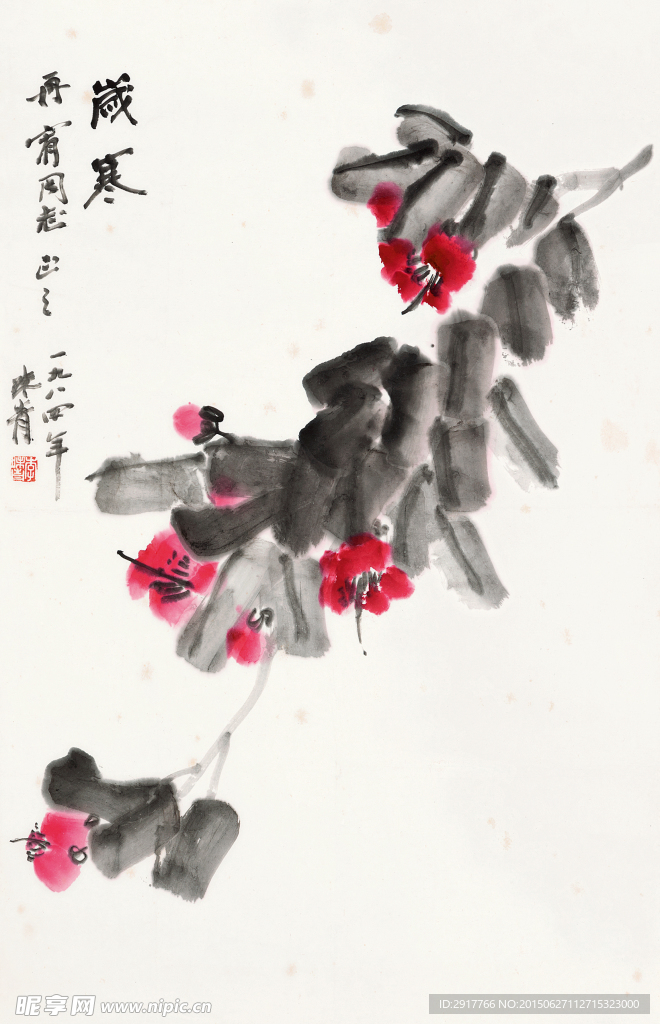 歲寒
再實同志正之
一九八四年
昵享网 www.nipic.cn
ID:2917766 NO:20150627112715323000